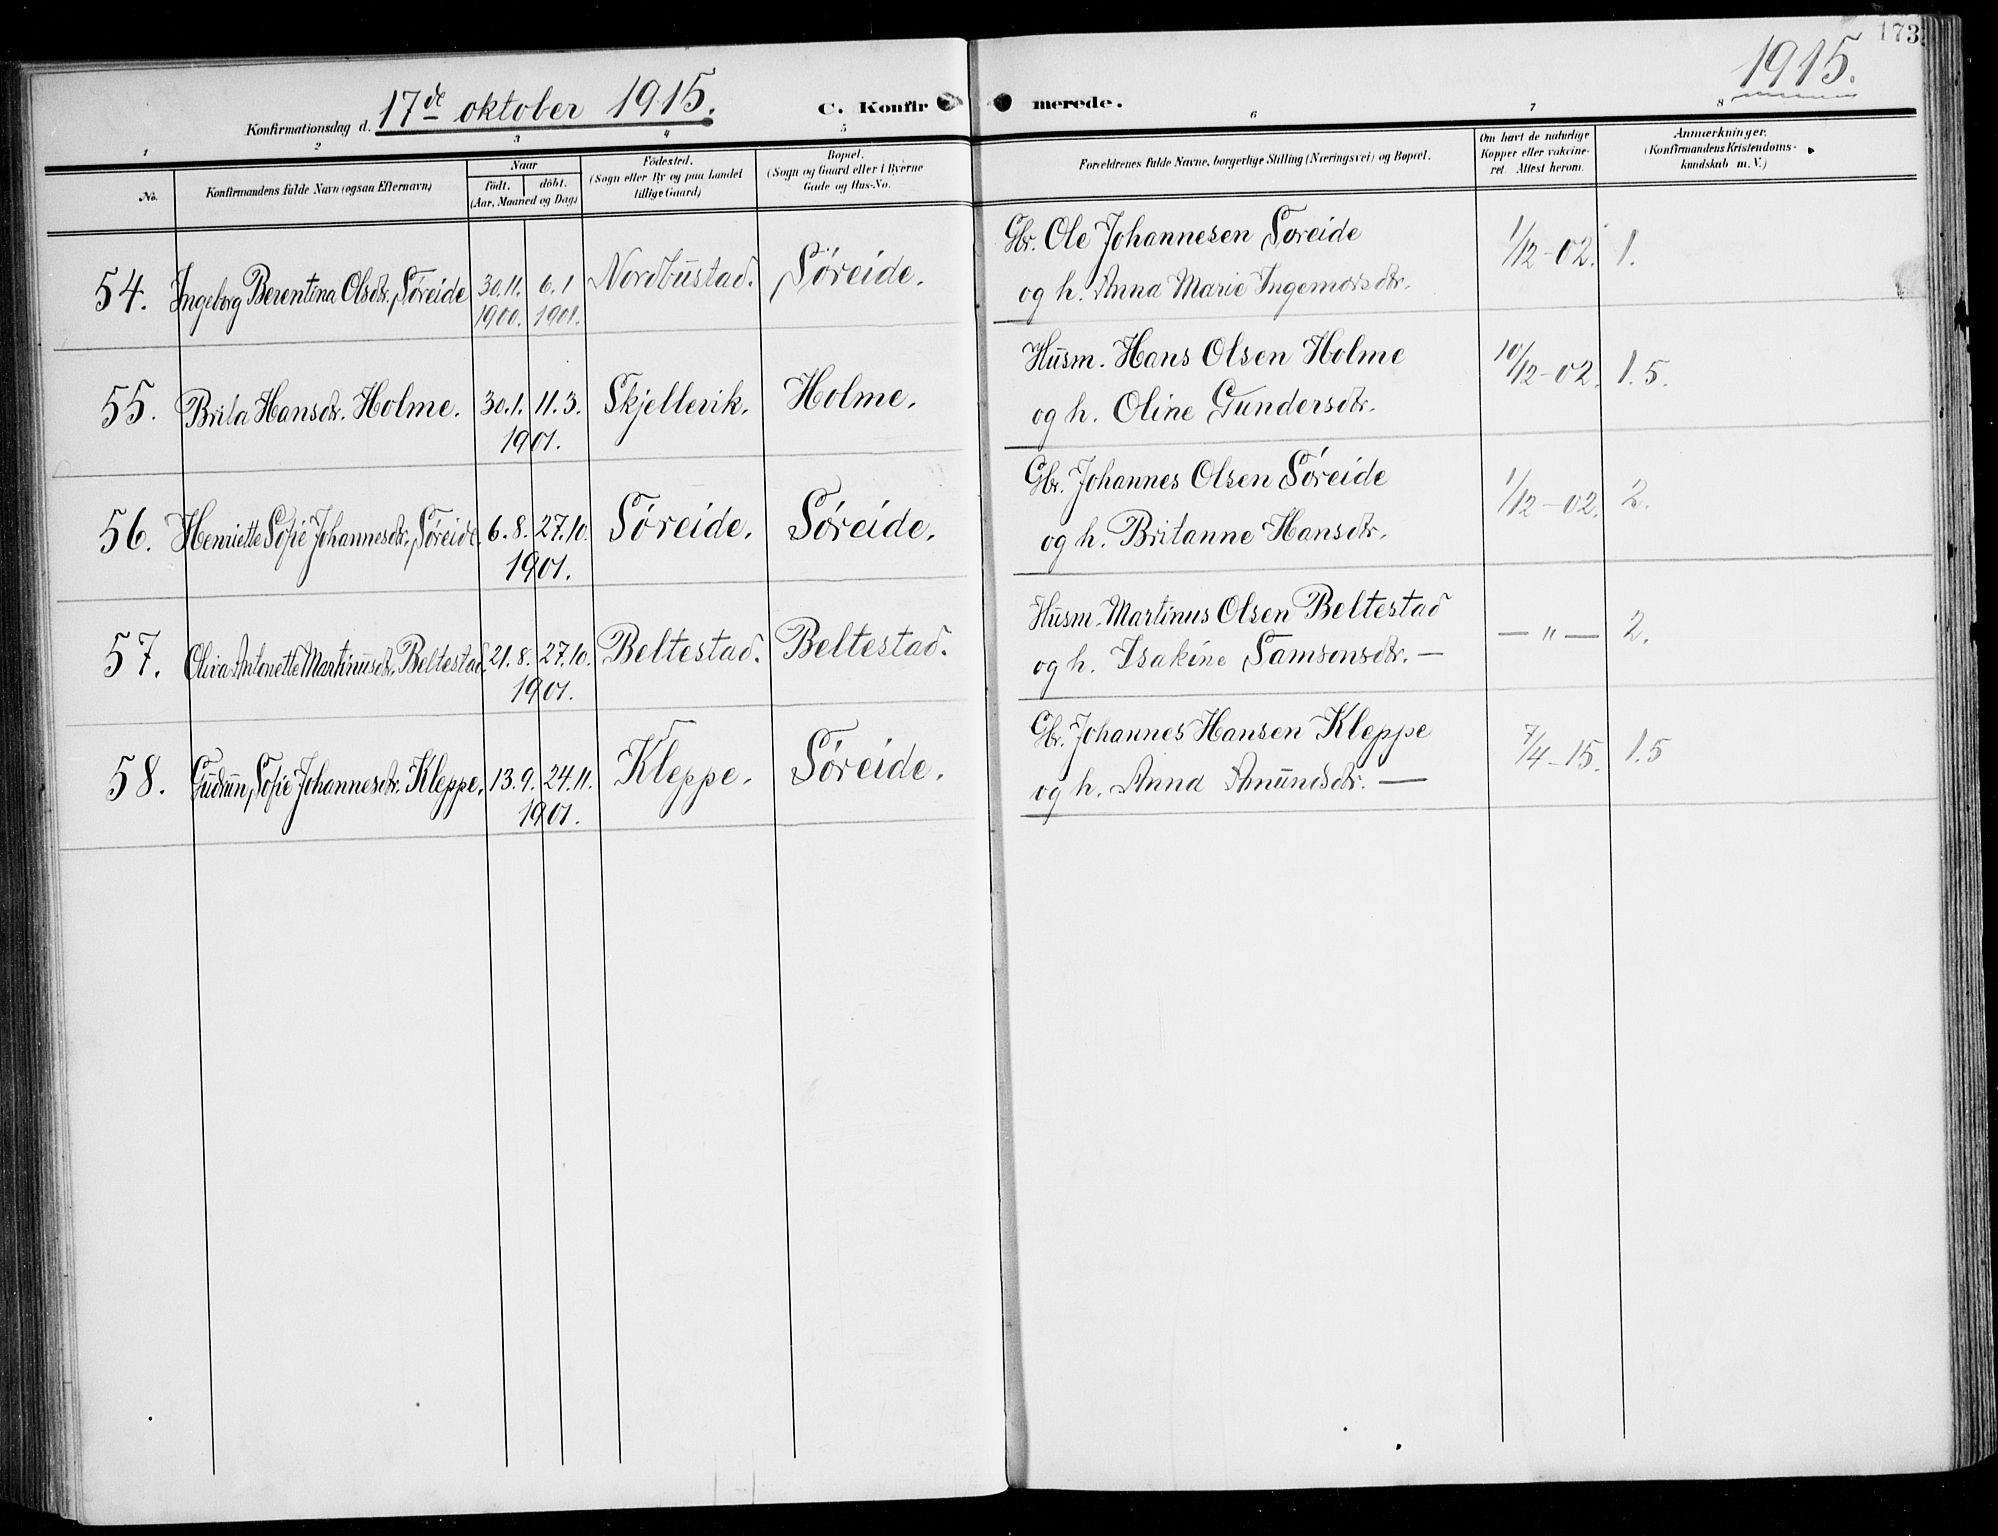 173
1915.
Konfirmationsdag d. 17de oktober 1915. C. Konfirmerede.
1 2 3 4 5 6 7 8
No.
Konfirmandens fulde Navn (ogsaa Efternavn)
Naar
født. døbt.
(Aar, Maaned og Dag)
Fødested.
(Sogn eller By og paa Landet
tillige Gaard)
Bopæl.
(Sogn og Gaard eller i Byerne
Gade og Hus-No.
Forældrenes fulde Navne, borgerlige Stilling (Næringsvei) og Bopæl.
Om havt de naturlige
Kopper eller vakcine-
ret. Attest herom.
Anmærkninger.
(Konfirmandens Kristendoms-
kundskab m. V.)
54. Ingeborg Berentina Olsdtr. Søreide 30.11. 6.1 Nordbustad. Søreide.
1900. 1901.
Gbr. Ole Johannesen Søreide 1/12-02. 1.
og h. Anna Marie Ingemorsdtr.
55. Brita Hansdtr. Holme. 30.1. 11.3. Skjellevik. Holme.
1901.
Husm. Hans Olsen Holme 10/12-02. 1.5.
og h. Oline Gundersdtr.
56. Henriette Sofie Johannesdtr. Søreide. 6.8. 27.10. Søreide. Søreide.
1901.
Gbr. Johannes Olsen Søreide 1/12-02. 2.
og h. Britanne Hansdtr.
57. Olivia Antonette Martinusdtr. Beltestad. 21.8. 27.10. Beltestad. Beltestad.
1901.
Husm. Martinus Olsen Beltestad — " — 2.
og h. Isakine Samsonsdtr. —
58. Gudrun Sofie Johannesdtr. Kleppe. 13.9. 24.11. Kleppe. Søreide.
1901.
Gbr. Johannes Hansen Kleppe 7/4-15. 1.5
og h. Anna Amundsdtr. —